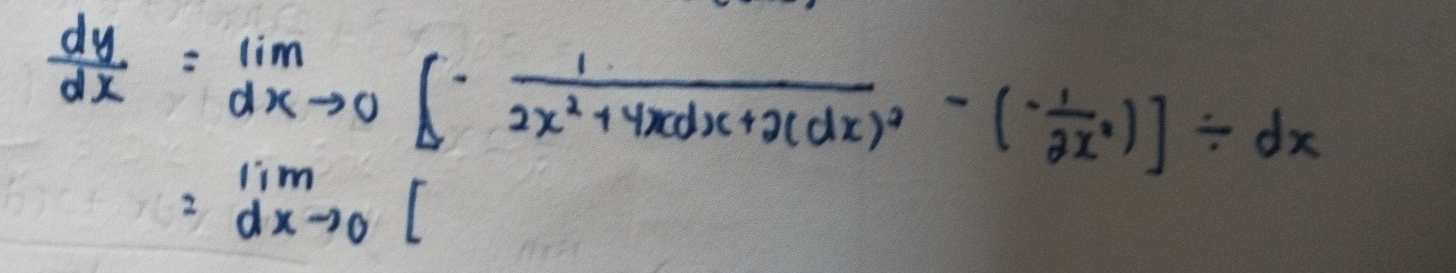 dy/dx = lim dx→0 [- 1/(2x² + 4xdx + 2(dx)²) - (-1/2x²)] ÷ dx
= lim dx→0 [